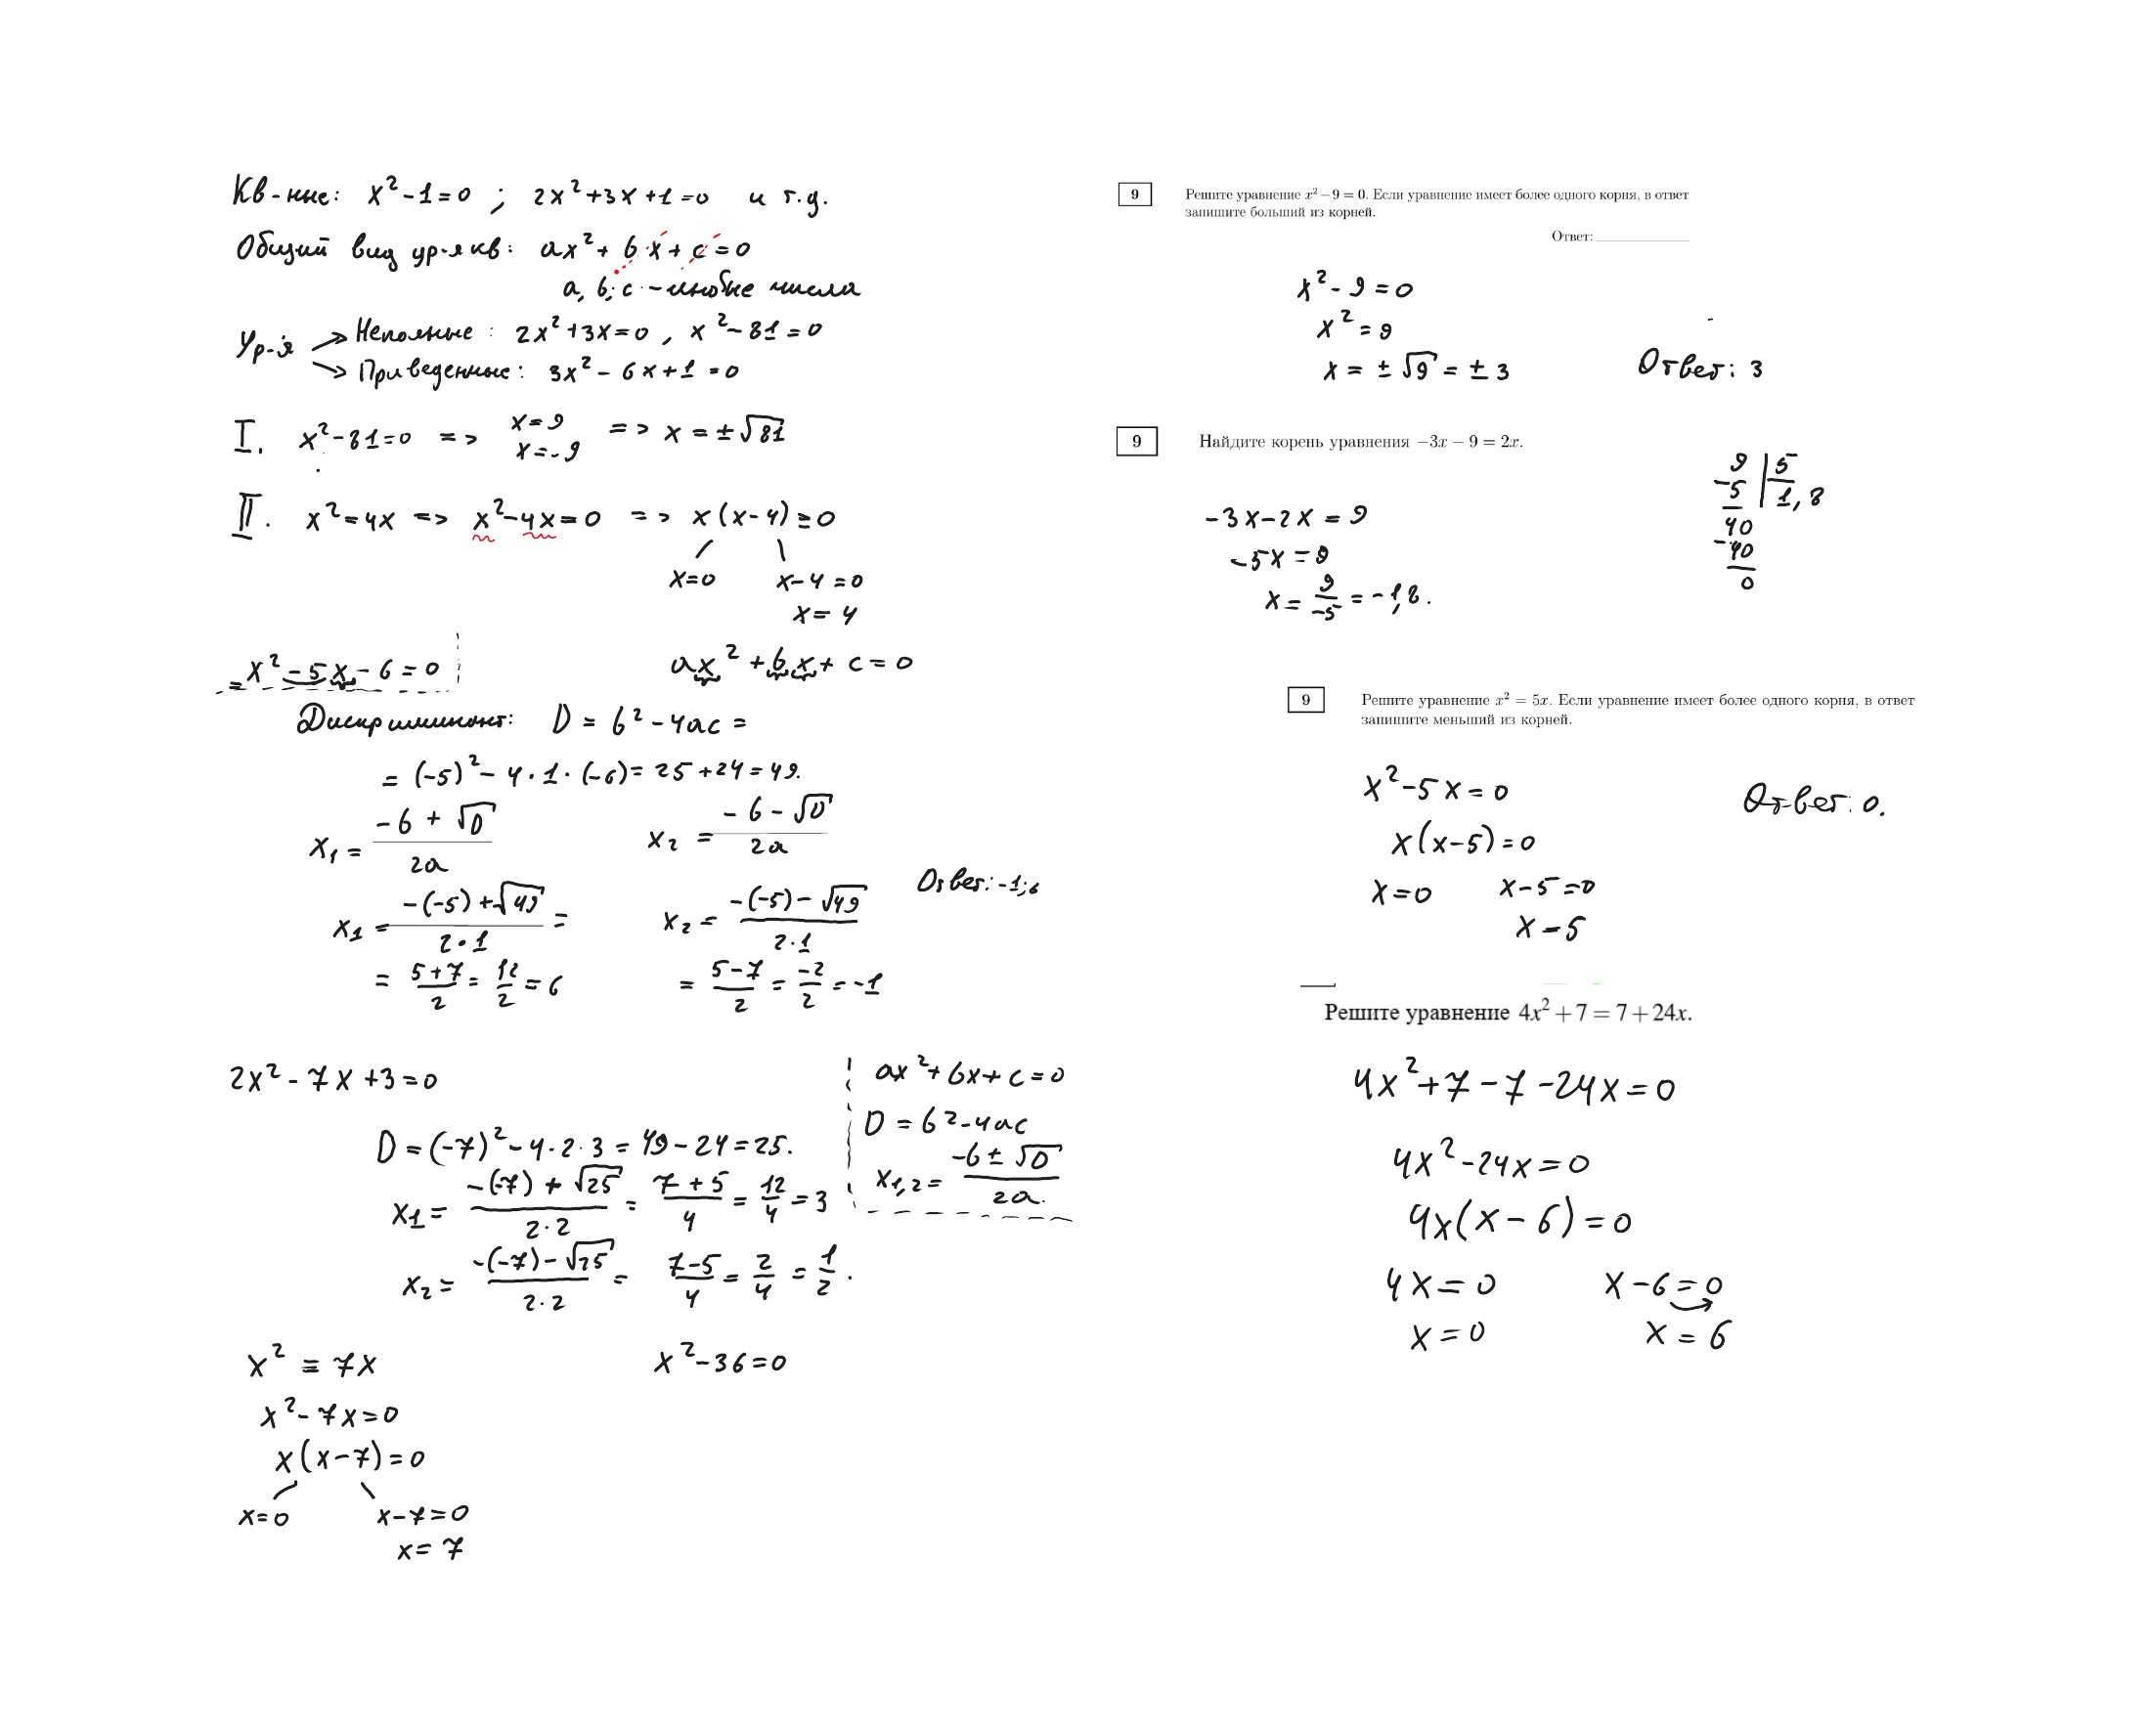 Кв-ние: x² - 1 = 0 ; 2x² + 3x + 1 = 0 и т.д.
Общий вид ур-я кв: ax² + bx + c = 0
a, b, c - любые числа
Ур-я
Неполные : 2x² + 3x = 0 , x² - 81 = 0
Приведенные : 3x² - 6x + 1 = 0
I. x² - 81 = 0 => x = 9 x = -9 => x = ±√81
II. x² = 4x => x² - 4x = 0 => x(x - 4) = 0
x = 0 x - 4 = 0
x = 4
x² - 5x - 6 = 0 ax² + bx + c = 0
Дискриминант: D = b² - 4ac =
= (-5)² - 4 · 1 · (-6) = 25 + 24 = 49.
x₁ = (-b + √D) / 2a x₂ = (-b - √D) / 2a
x₁ = (-(-5) + √49) / (2 · 1) = x₂ = (-(-5) - √49) / (2 · 1)
Ответ: -1; 6
= (5 + 7) / 2 = 12/2 = 6 = (5 - 7) / 2 = -2/2 = -1
2x² - 7x + 3 = 0
D = (-7)² - 4 · 2 · 3 = 49 - 24 = 25.
x₁ = (-(-7) + √25) / (2 · 2) = (7 + 5) / 4 = 12/4 = 3
x₂ = (-(-7) - √25) / (2 · 2) = (7 - 5) / 4 = 2/4 = 1/2 .
ax² + bx + c = 0
D = b² - 4ac
x₁,₂ = (-b ± √D) / 2a.
x² = 7x x² - 36 = 0
x² - 7x = 0
x(x - 7) = 0
x = 0 x - 7 = 0
x = 7
9 Решите уравнение x² − 9 = 0. Если уравнение имеет более одного корня, в ответ
запишите больший из корней.
Ответ:
x² - 9 = 0
x² = 9
x = ±√9 = ±3 Ответ: 3
9 Найдите корень уравнения −3x − 9 = 2x.
-3x - 2x = 9
-5x = 9
x = 9/-5 = -1,8.
9 | 5
-5 | 1,8
40
-40
0
9 Решите уравнение x² = 5x. Если уравнение имеет более одного корня, в ответ
запишите меньший из корней.
x² - 5x = 0
Ответ: 0.
x(x - 5) = 0
x = 0 x - 5 = 0
x = 5
Решите уравнение 4x² + 7 = 7 + 24x.
4x² + 7 - 7 - 24x = 0
4x² - 24x = 0
4x(x - 6) = 0
4x = 0 x - 6 = 0
x = 0 x = 6